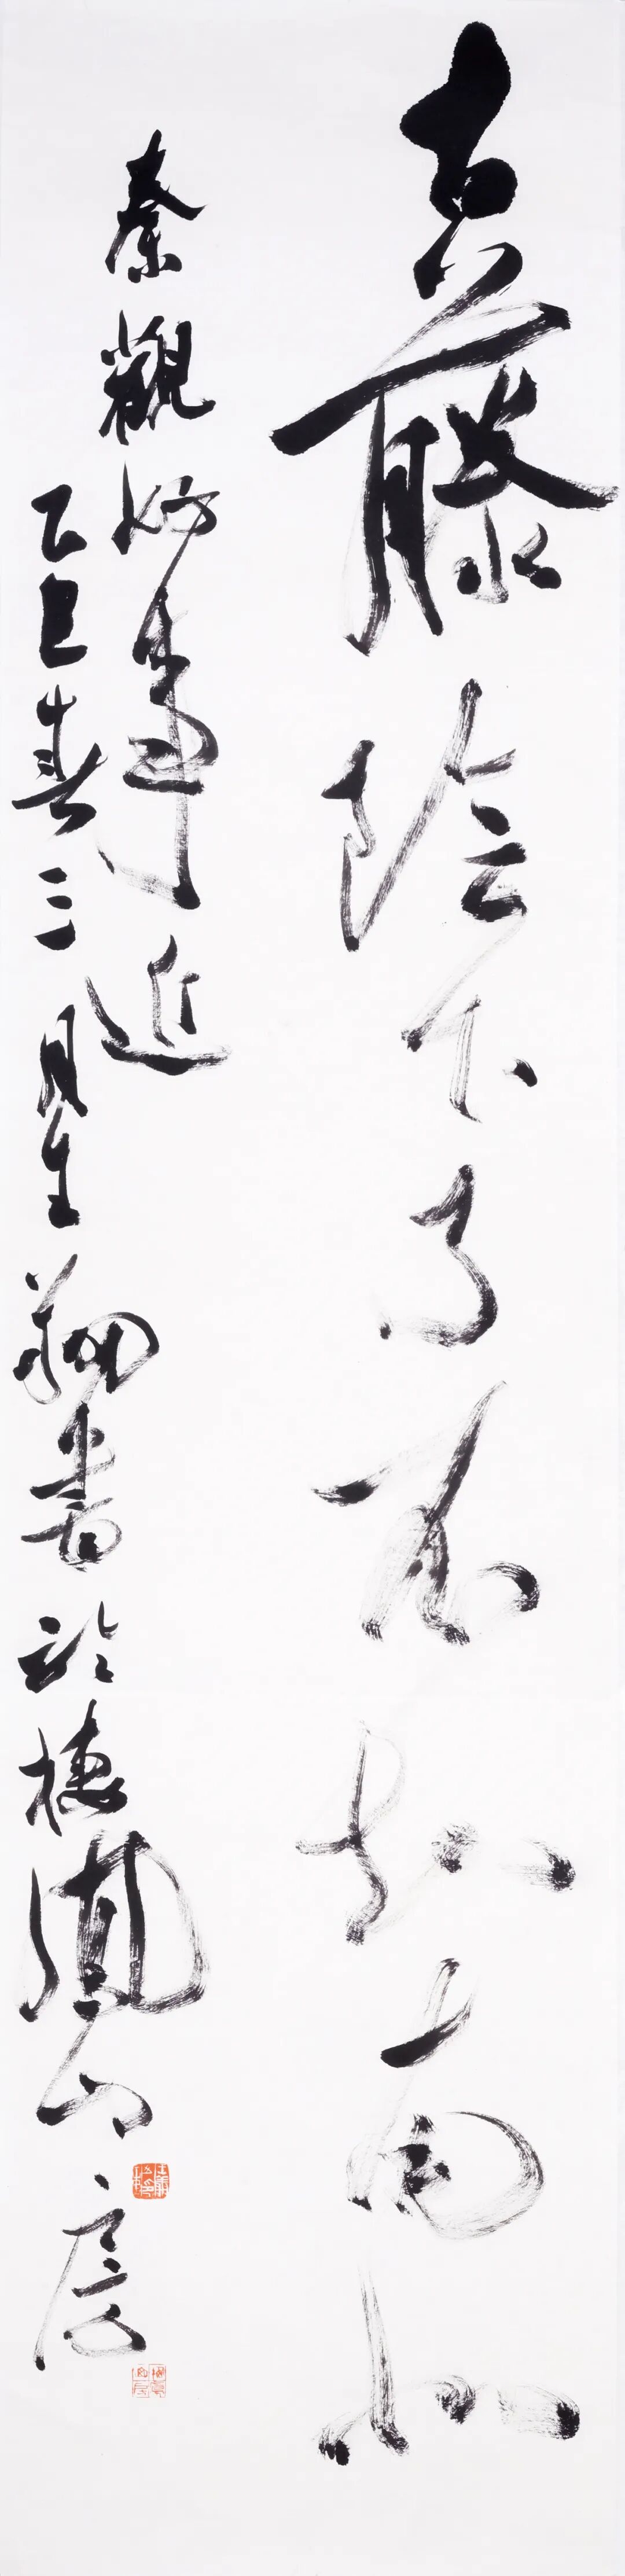 古藤陰下了不知南北
秦觀好事近
乙巳春三月生翔書於棲鳳山房